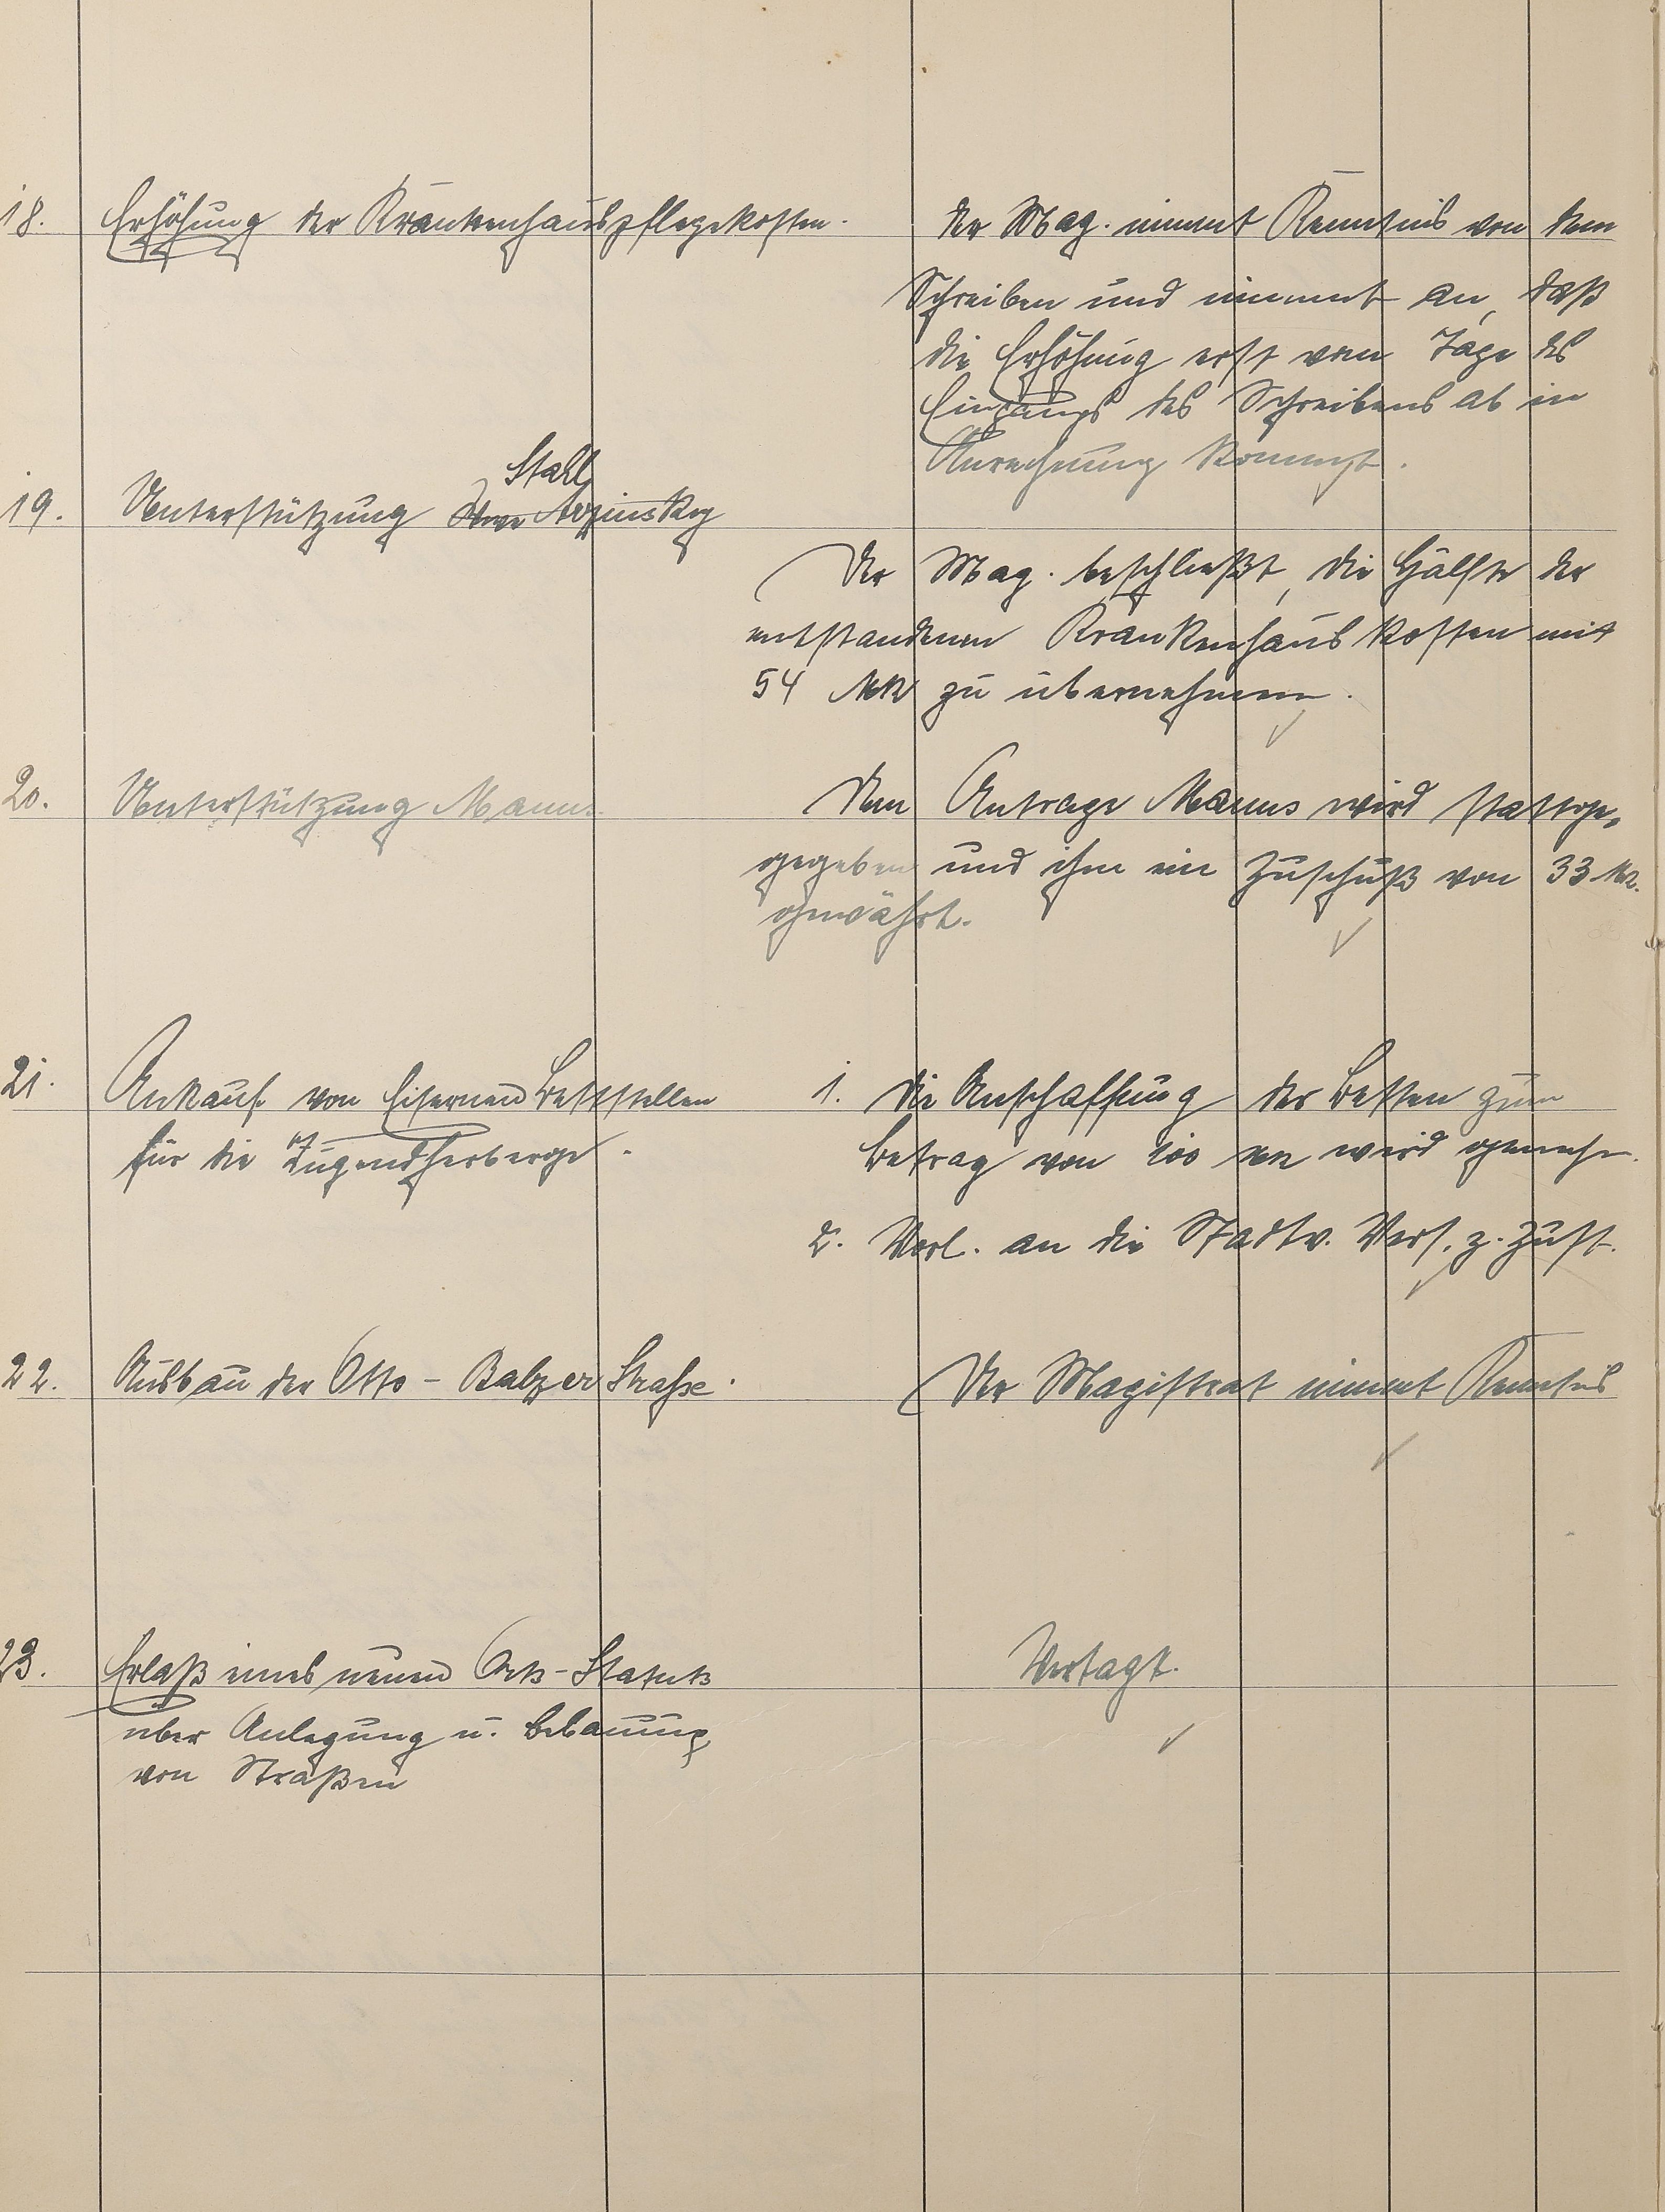 18. Erhöhung der Krankenhauspflegekosten.
der Mag. nimmt Kenntnis von dem
Schreiben und nimmt an, daß
die Erhöhung erst vom Tage des
Eingangs des Schreibens ab in
Anrechnung kommt.
Stall
19. Unterstützung
Der Mag. beschließt, die Hälfte der
entstandenen Krankenhauskosten mit
54 Mk zu übernehmen.
20. Unterstützung Manns
Dem Antrage Manns wird stattge-
gegeben und ihm ein Zuschuß von 33 Mk.
gewährt.
21. Ankauf von Eisernen Bettstellen
für die Jugendherberge.
1. Die Anschaffung der Betten zum
Betrag von 200 Mk wird genehm.
2. Vorl. an die Stadtv. Vers. z. Zust.
22. Ausbau der Otto-Balzer Straße.
Der Magistrat nimmt Kenntnis
23. Erlaß eines neuen Orts-Statuts
über Anlegung u. Bebauung
von Straßen
Vertagt.